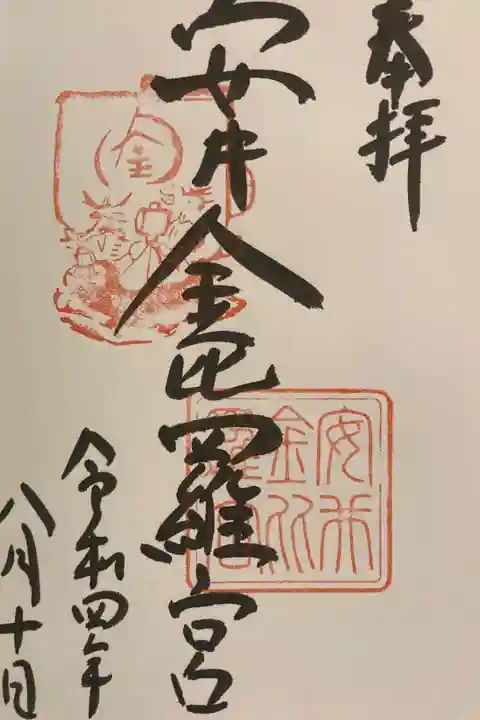 奉拝
安井金毘羅宮
令和四年
八月十日
金
安井
金比
羅宮